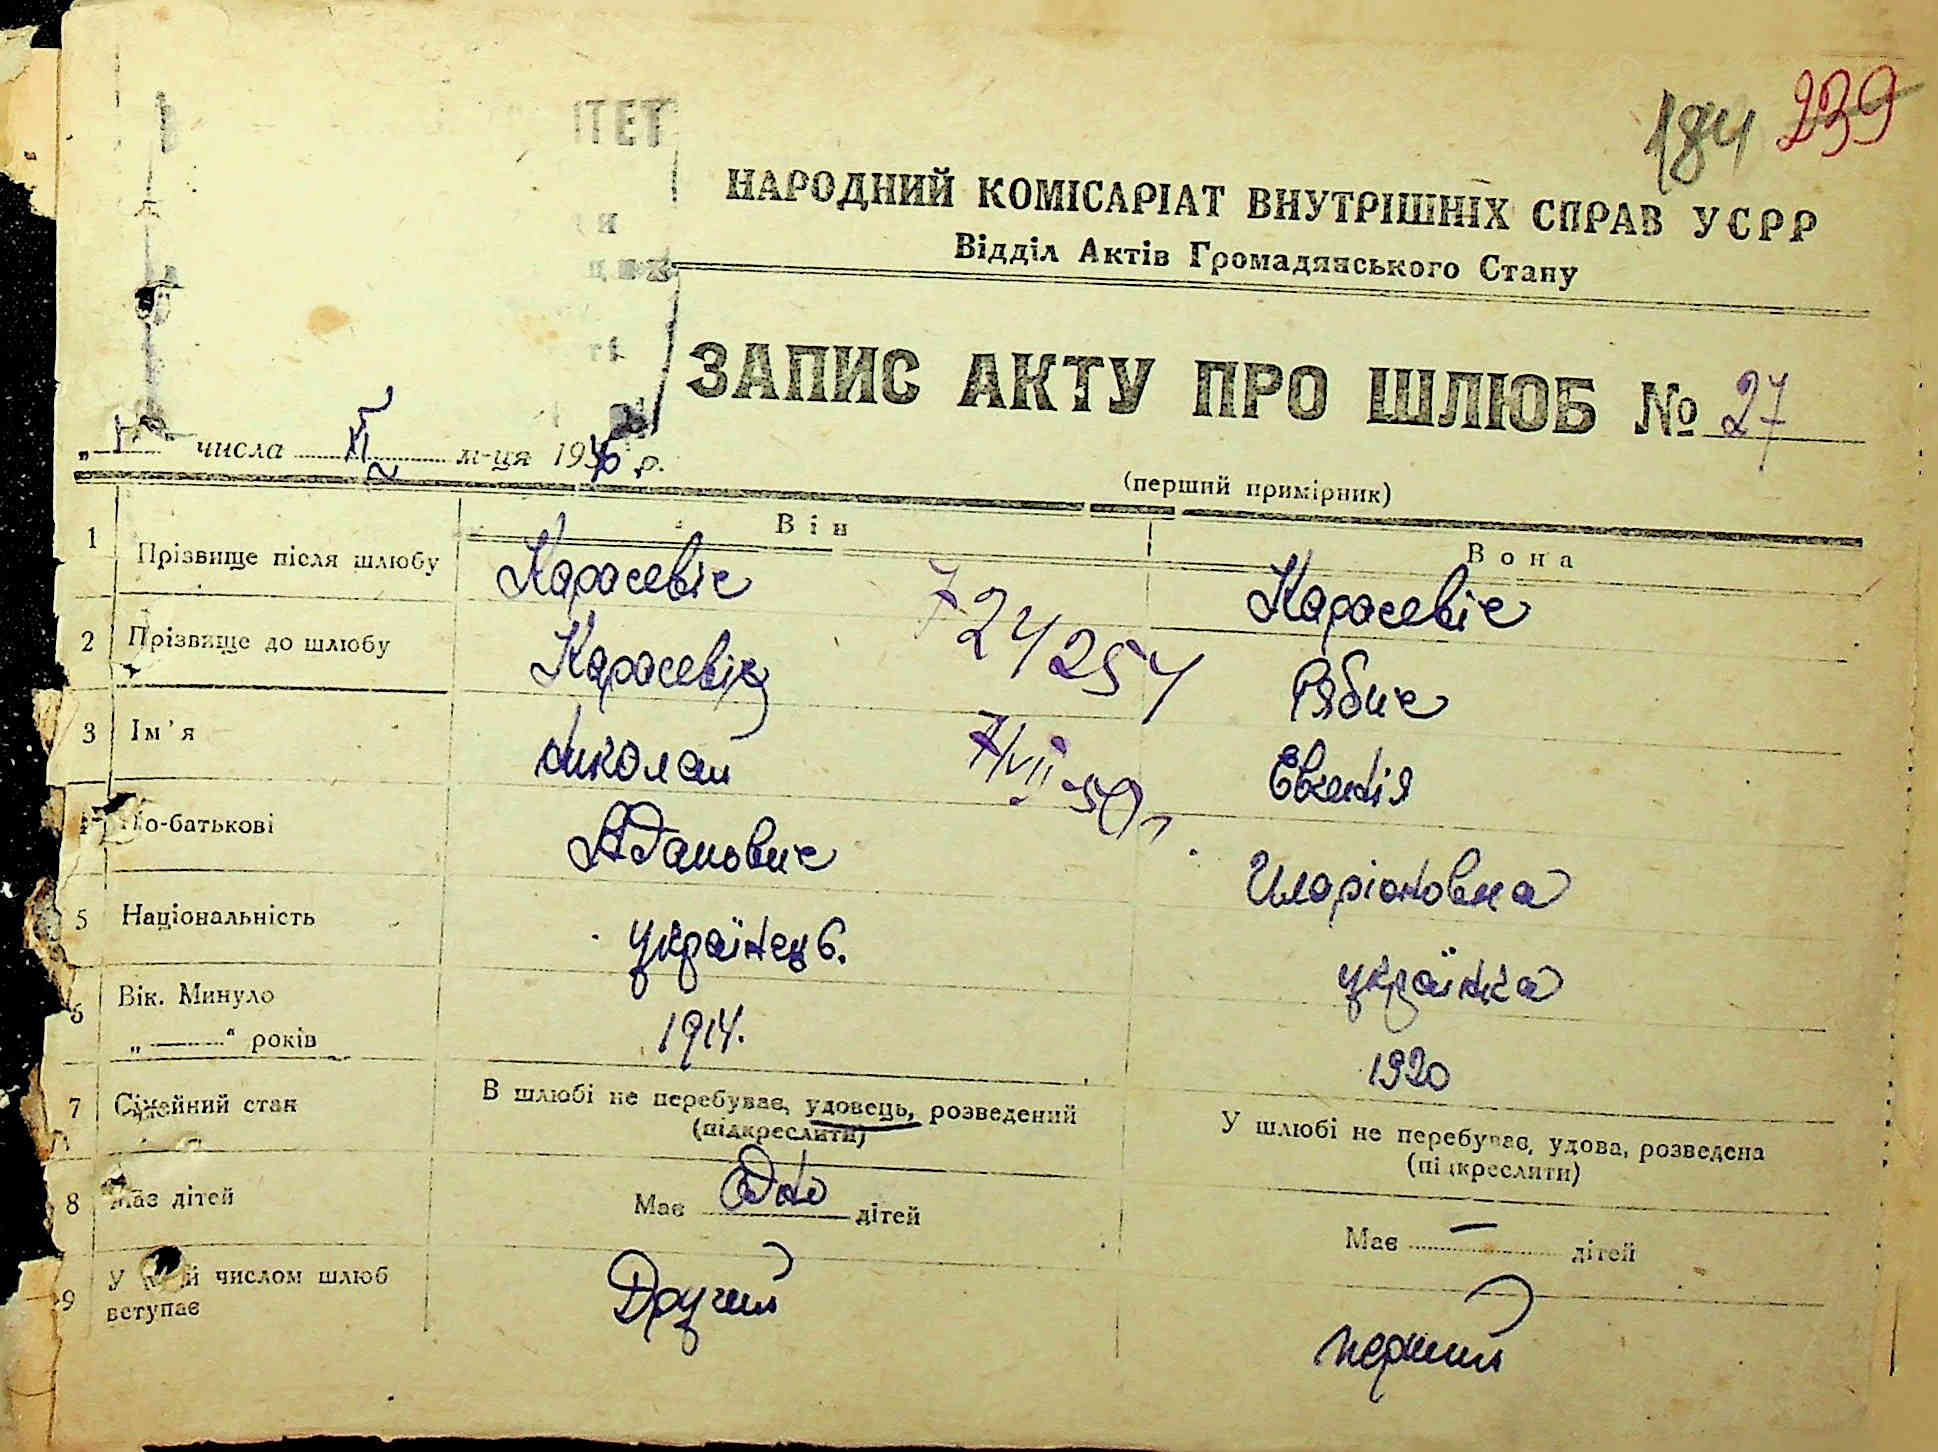 184 239
ІТЕТ
НАРОДНИЙ КОМІСАРІАТ ВНУТРІШНІХ СПРАВ УСРР
Відділ Актів Громадянського Стану
ЗАПИС АКТУ ПРО ШЛЮБ № 27
числа м-ця 1940 р.
(перший примірник)
Він Вона
1 Прізвище після шлюбу Карасевіч Карасевіч
2 Прізвище до шлюбу Карасевіч Рябич
724254
3 Ім'я Николай Евгенія
7/VII-50 г.
4 По-батькові Адамович Иларіоновна
5 Національність українець. українка
6 Вік. Минуло 1914. 1920
„ “ років
7 Сімейний стан В шлюбі не перебуває, удовець, розведений У шлюбі не перебуває, удова, розведена
(підкреслити) (підкреслити)
8 Має дітей Має Одно дітей Має — дітей
9 У який числом шлюб Другий перший
вступає